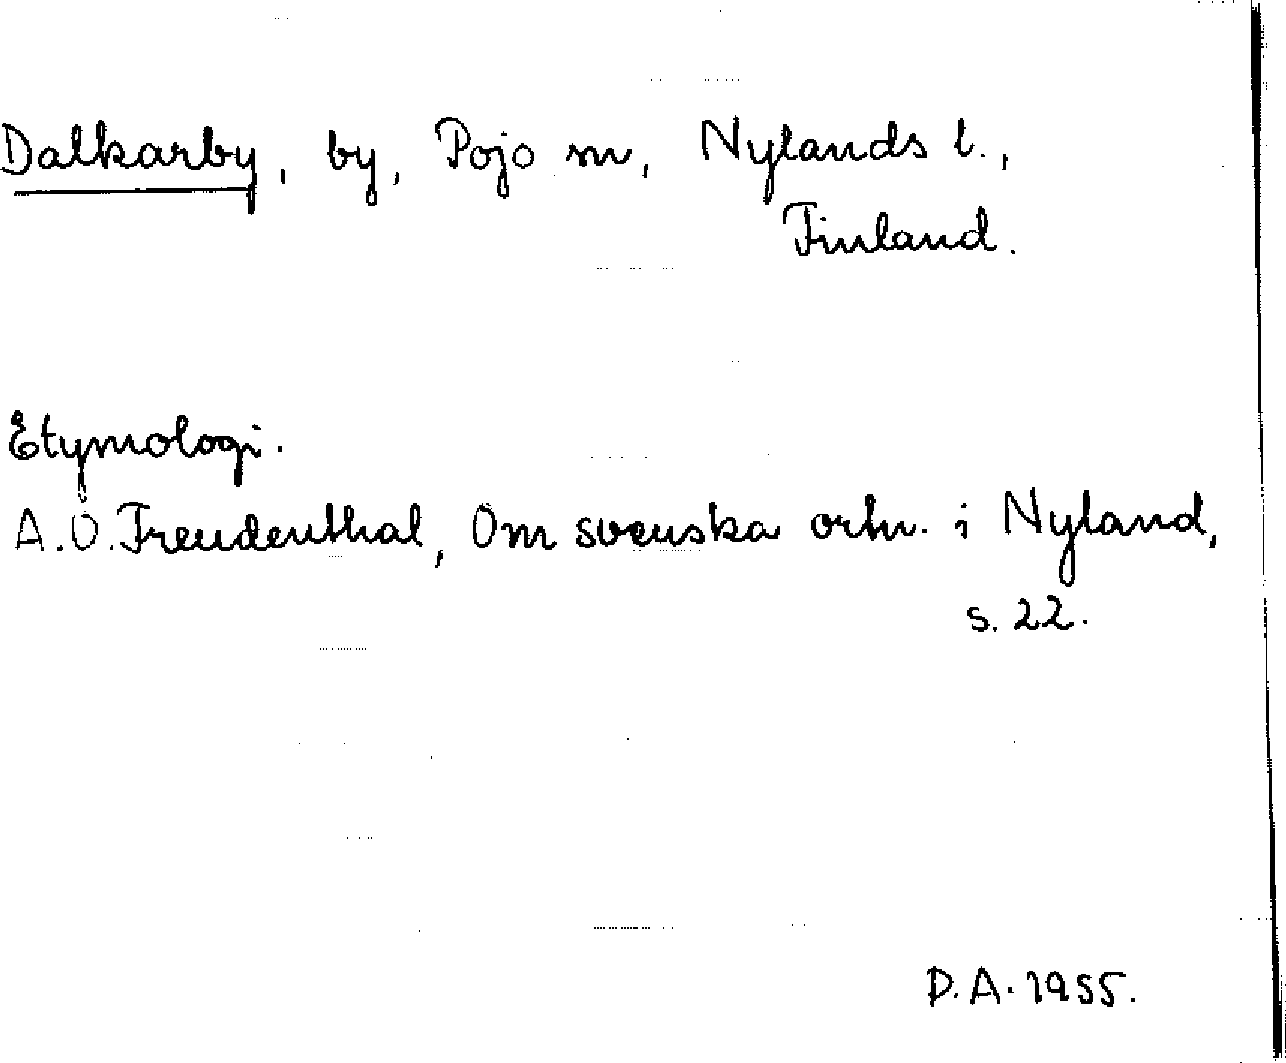 Dalkarby, by, Pojo sn, Nylands l.,
Finland.
Etymologi.
A.O. Freudenthal, Om svenska ortn. i Nyland,
s. 22.
D.A. 1955.